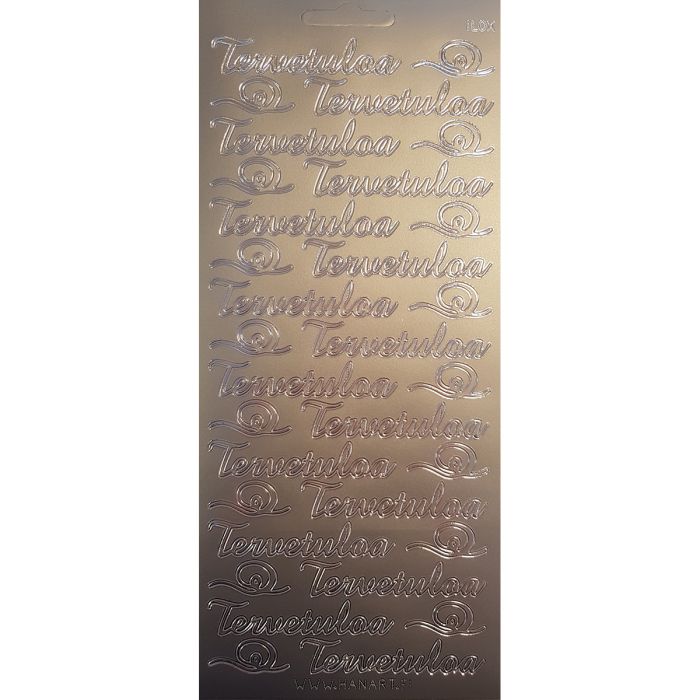 iLOX
Tervetuloa
Tervetuloa
Tervetuloa
Tervetuloa
Tervetuloa
Tervetuloa
Tervetuloa
Tervetuloa
Tervetuloa
Tervetuloa
Tervetuloa
Tervetuloa
Tervetuloa
Tervetuloa
Tervetuloa
Tervetuloa
WWW.HANART.FI